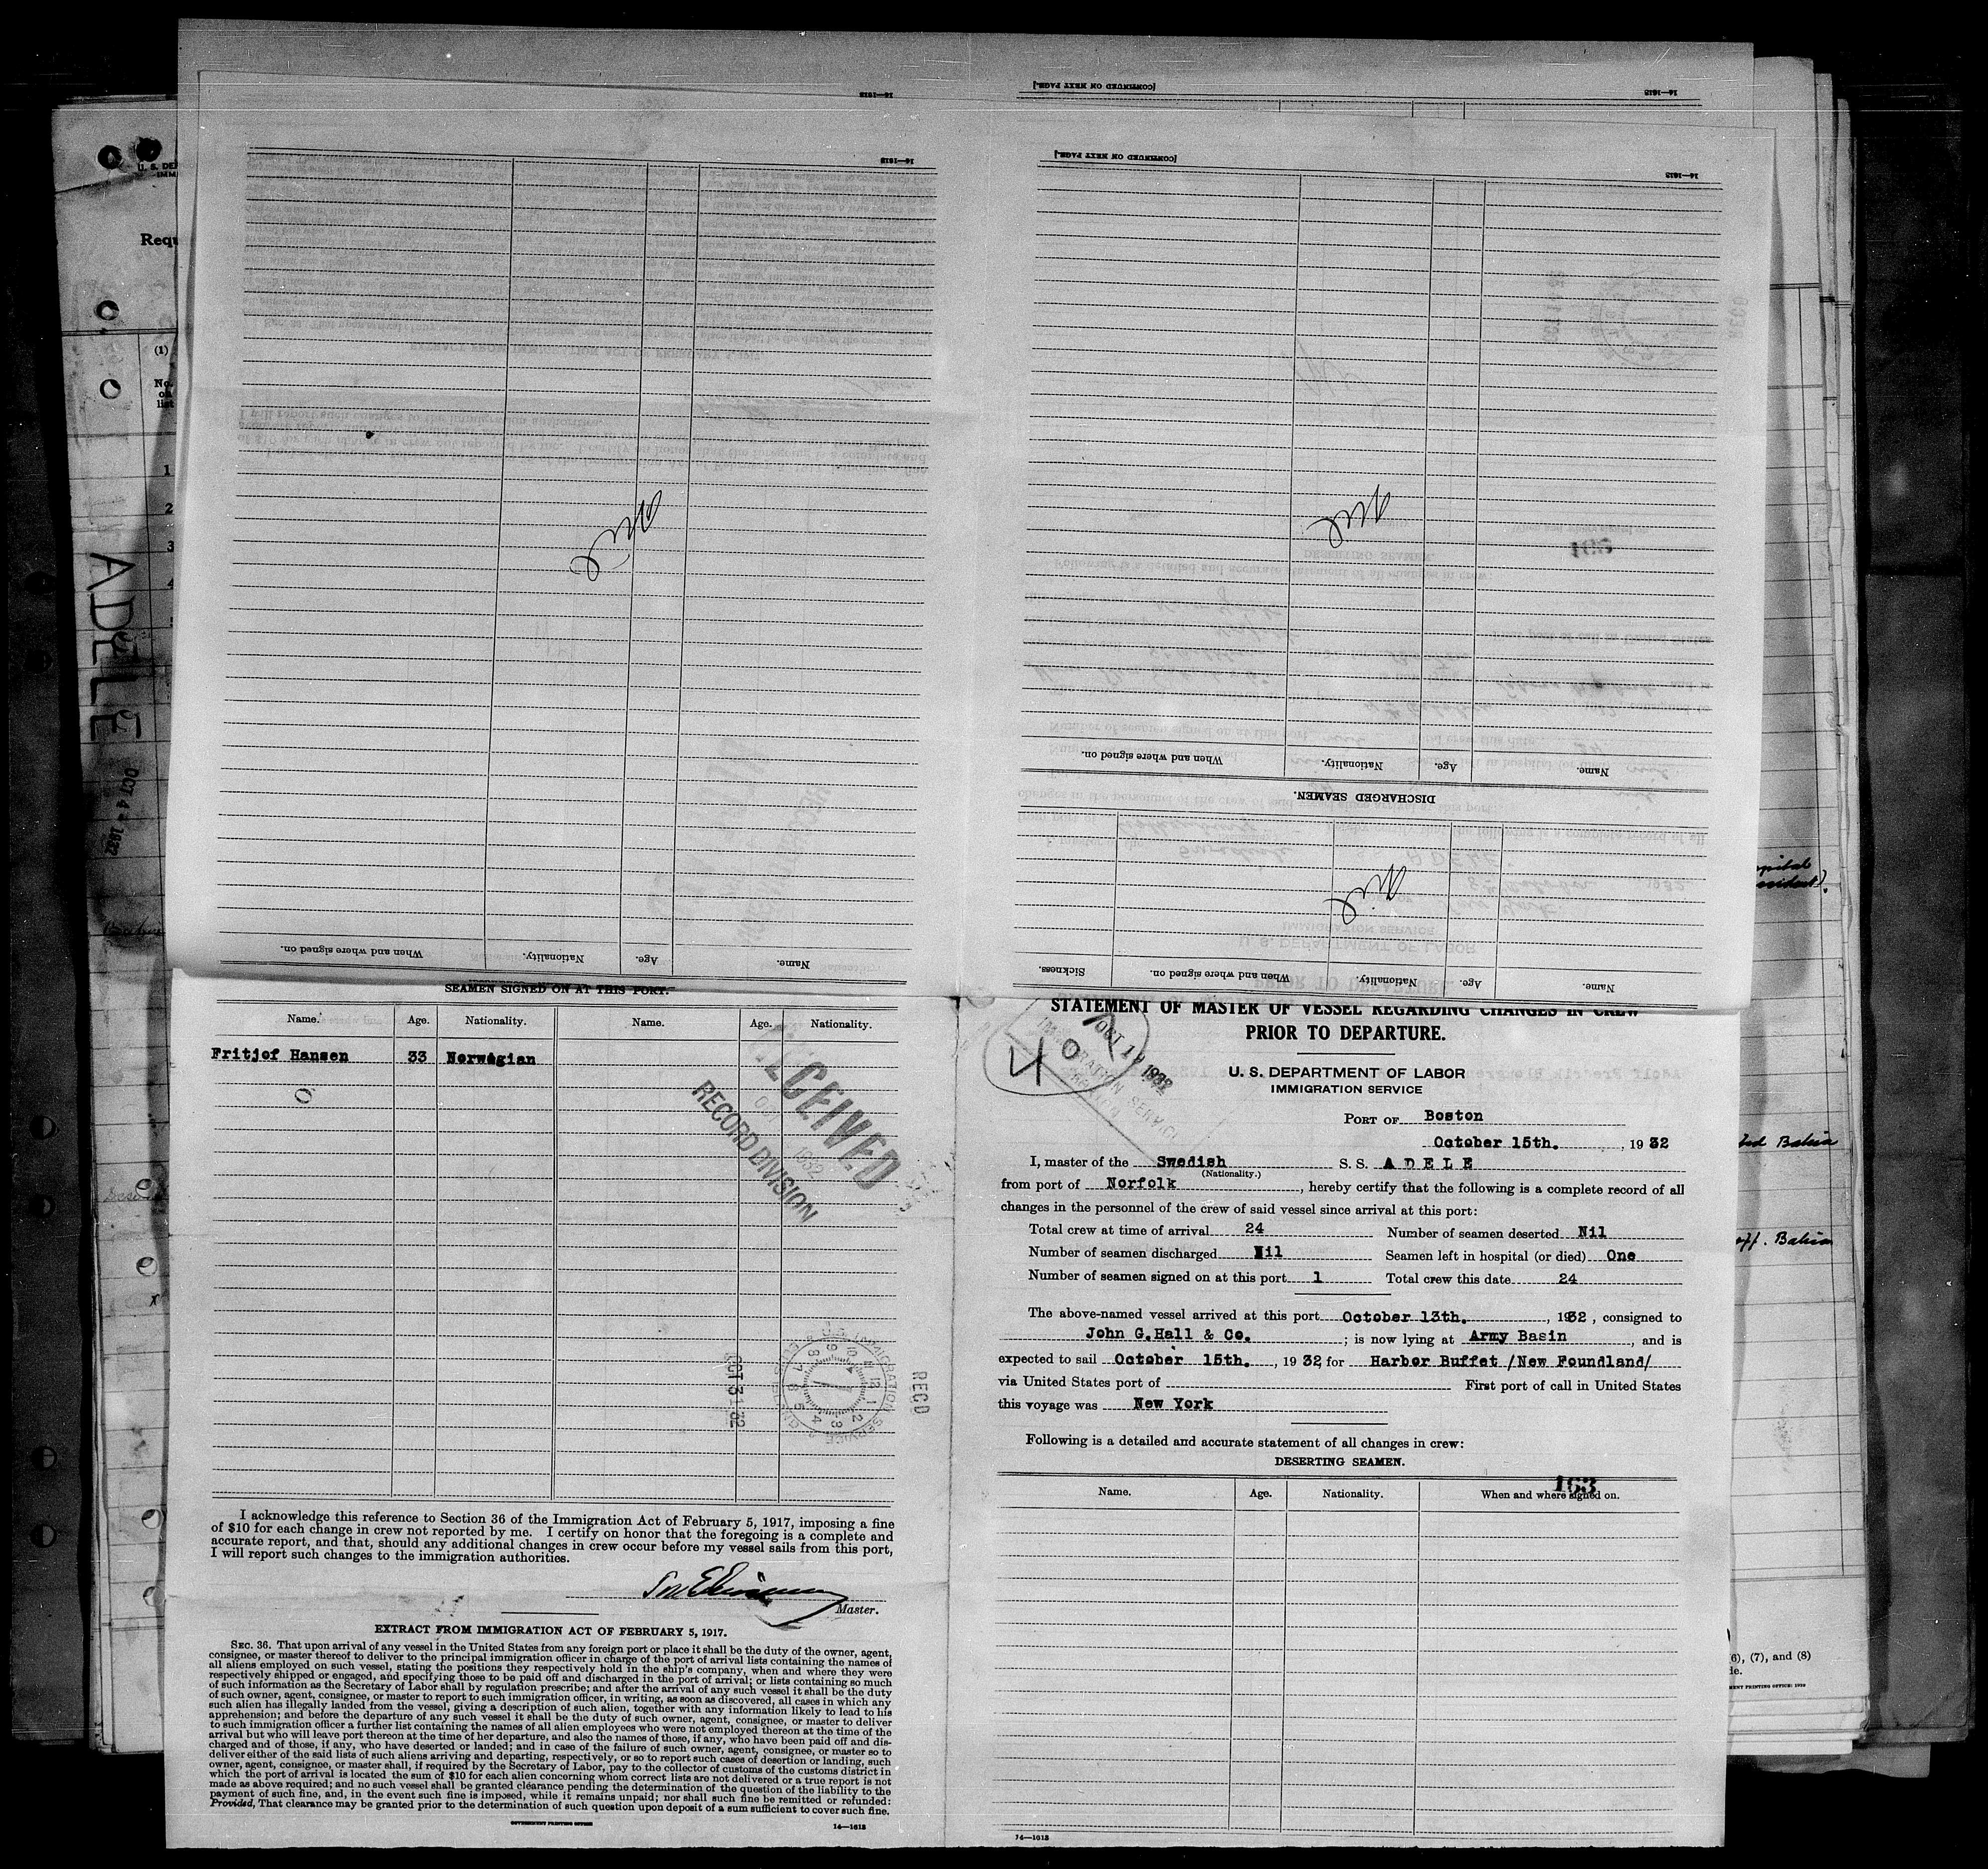 [CONTINUED ON NEXT PAGE.]
14—1613
14—1613
14—1613
[CONTINUED ON NEXT PAGE.]
14—1613
Name.
Age.
Nationality.
When and where signed on.
Nil
DISCHARGED SEAMEN.
Name.
Age.
Nationality.
When and where signed on.
Nil
Name.
Age.
Nationality.
When and where signed on.
Sickness.
Nil
Requ
(1)
No.
on
list
1
2
3
4
ADELE
OCT 4 1932
SEAMEN SIGNED ON AT THIS PORT.
Name. Age. Nationality. Name. Age. Nationality.
Fritjof Hansen 33 Norwegian
RECEIVED
1932
RECORD DIVISION
OCT 31 32
IMMIGRATION SERVICE
RECD
I acknowledge this reference to Section 36 of the Immigration Act of February 5, 1917, imposing a fine
of $10 for each change in crew not reported by me. I certify on honor that the foregoing is a complete and
accurate report, and that, should any additional changes in crew occur before my vessel sails from this port,
I will report such changes to the immigration authorities.
Master.
EXTRACT FROM IMMIGRATION ACT OF FEBRUARY 5, 1917.
SEC. 36. That upon arrival of any vessel in the United States from any foreign port or place it shall be the duty of the owner, agent,
consignee, or master thereof to deliver to the principal immigration officer in charge of the port of arrival lists containing the names of
all aliens employed on such vessel, stating the positions they respectively hold in the ship's company, when and where they were
respectively shipped or engaged, and specifying those to be paid off and discharged in the port of arrival; or lists containing so much
of such information as the Secretary of Labor shall by regulation prescribe; and after the arrival of any such vessel it shall be the duty
of such owner, agent, consignee, or master to report to such immigration officer, in writing, as soon as discovered, all cases in which any
such alien has illegally landed from the vessel, giving a description of such alien, together with any information likely to lead to his
apprehension; and before the departure of any such vessel it shall be the duty of such owner, agent, consignee, or master to deliver
to such immigration officer a further list containing the names of all alien employees who were not employed thereon at the time of the
arrival but who will leave port thereon at the time of her departure, and also the names of those, if any, who have been paid off and dis-
charged and of those, if any, who have deserted or landed; and in case of the failure of such owner, agent, consignee, or master so to
deliver either of the said lists of such aliens arriving and departing, respectively, or so to report such cases of desertion or landing, such
owner, agent, consignee, or master shall, if required by the Secretary of Labor, pay to the collector of customs of the customs district in
which the port of arrival is located the sum of $10 for each alien concerning whom correct lists are not delivered or a true report is not
made as above required; and no such vessel shall be granted clearance pending the determination of the question of the liability to the
payment of such fine, and, in the event such fine is imposed, while it remains unpaid; nor shall such fine be remitted or refunded:
Provided, That clearance may be granted prior to the determination of such question upon deposit of a sum sufficient to cover such fine.
GOVERNMENT PRINTING OFFICE 14—1613
STATEMENT OF MASTER OF VESSEL REGARDING CHANGES IN CREW
PRIOR TO DEPARTURE.
U. S. DEPARTMENT OF LABOR
IMMIGRATION SERVICE
PORT OF Boston
October 15th. , 19 32
I, master of the Swedish S. S. A D E L E
(Nationality.)
from port of Norfolk , hereby certify that the following is a complete record of all
changes in the personnel of the crew of said vessel since arrival at this port:
Total crew at time of arrival 24 Number of seamen deserted Nil
Number of seamen discharged Nil Seamen left in hospital (or died) One
Number of seamen signed on at this port 1 Total crew this date 24
The above-named vessel arrived at this port October 13th. , 1932 , consigned to
John G. Hall & Co. ; is now lying at Army Basin , and is
expected to sail October 15th. , 19 32, for Harbor Buffet /New Foundland/
via United States port of First port of call in United States
this voyage was New York
Following is a detailed and accurate statement of all changes in crew:
DESERTING SEAMEN.
163
Name. Age. Nationality. When and where signed on.
14—1613
Bahia
off. Bahia
(6), (7), and (8)